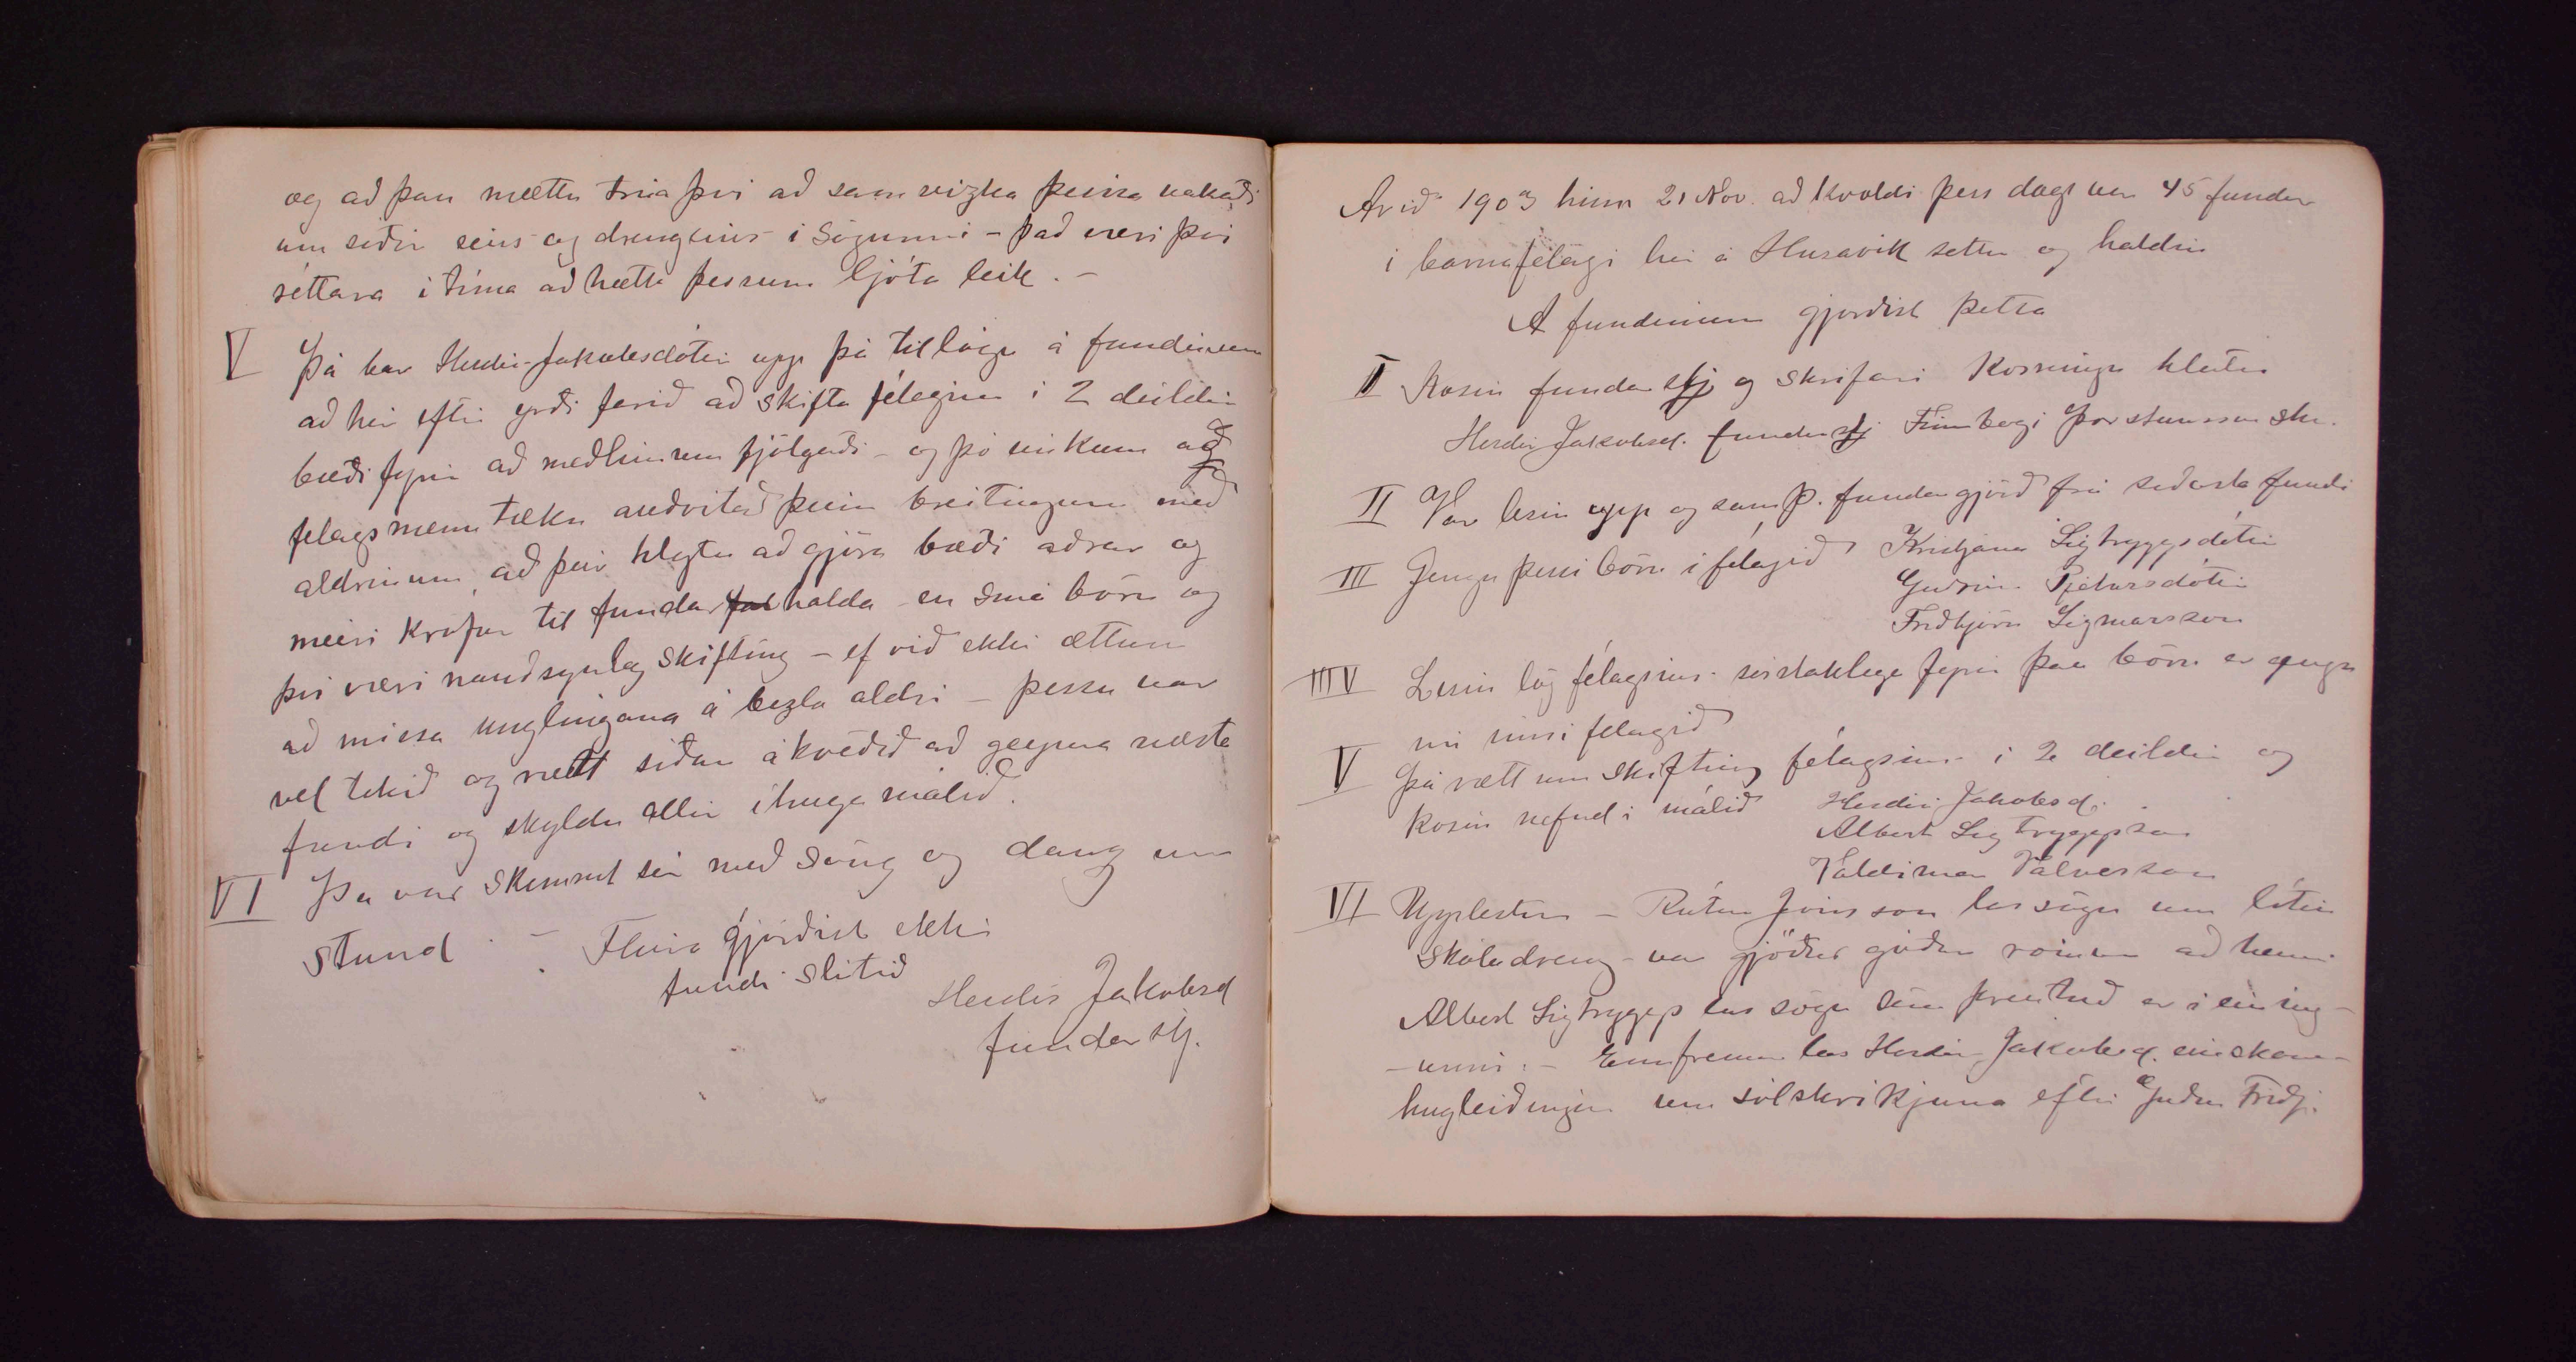 og að þau mættu trúa því að samvizka þeirra vaknaði
um síðir eins og drengsins í sögunni - það væri því
réttara í tíma að hætta þessum ljóta leik. -
V Þá bar Herdís Jakobsdóttir upp þá tillögu á fundinum
að hér eftir yrði farið að skifta félaginu í 2 deildir
bæði fyrir að meðlimum fjölgaði - og þó einkum að
felagsmenn tæku auðvitað þeim breitingum með
aldrinum, að þeir hlytu að gjöra bæði aðrar og
meiri kröfur til fundar halda en smá börn og
því væri nauðsynleg skifting - ef við ekki ættum
að missa unglingana á bezta aldri - þessu var
vel tekið og rætt síðan ákveðið að geyma næsta
fundi og skyldu allir íhuga málið.
VI Þá var skemmt sér með söng og dans um
stund. - Fleira gjörðist ekki
fundi slitið
Herdís Jakobsd
fundarstj.
Arið 1903 hinn 21 Nov. að kvoldi þess dags var 45 fundur
i barnafélagi hér á Husavík settur og haldin
A fundinum gjorðist þetta
I Kosin fundarstj og skrifari Kosningu hlutu
Herdís Jakobsd. fundarstj Finnbogi Þorsteinsson skr.
II Var lesin upp og samþ. fundargjörð frá síðasta fundi
III Gengu þessi börn í félagið Kristjana Sigtryggsdóttir
Guðrún Pjetursdóttir
Friðbjörn Sigmarsson
IV Lesin lög félagsins - sérstaklega fyrir þau börn er gengu
nú inn í felagið
V Þá rætt um skifting félagsins í 2 deildir og
kosin nefnd í málið Herdís Jakobsd.
Albert Sigtryggsson
Valdimar Valvesson
VI Upplestur - Rútur Jónsson las sögu um lítin
skóladreng - var gjörður góður rómur að henni
Albert Sigtryggs las sögu sem prentuð er í eining-
-unni. - Ennfremur las Herdís Jakobsd.
hugleiðingu um sólskrikjuna eftir Guðm Friðj.